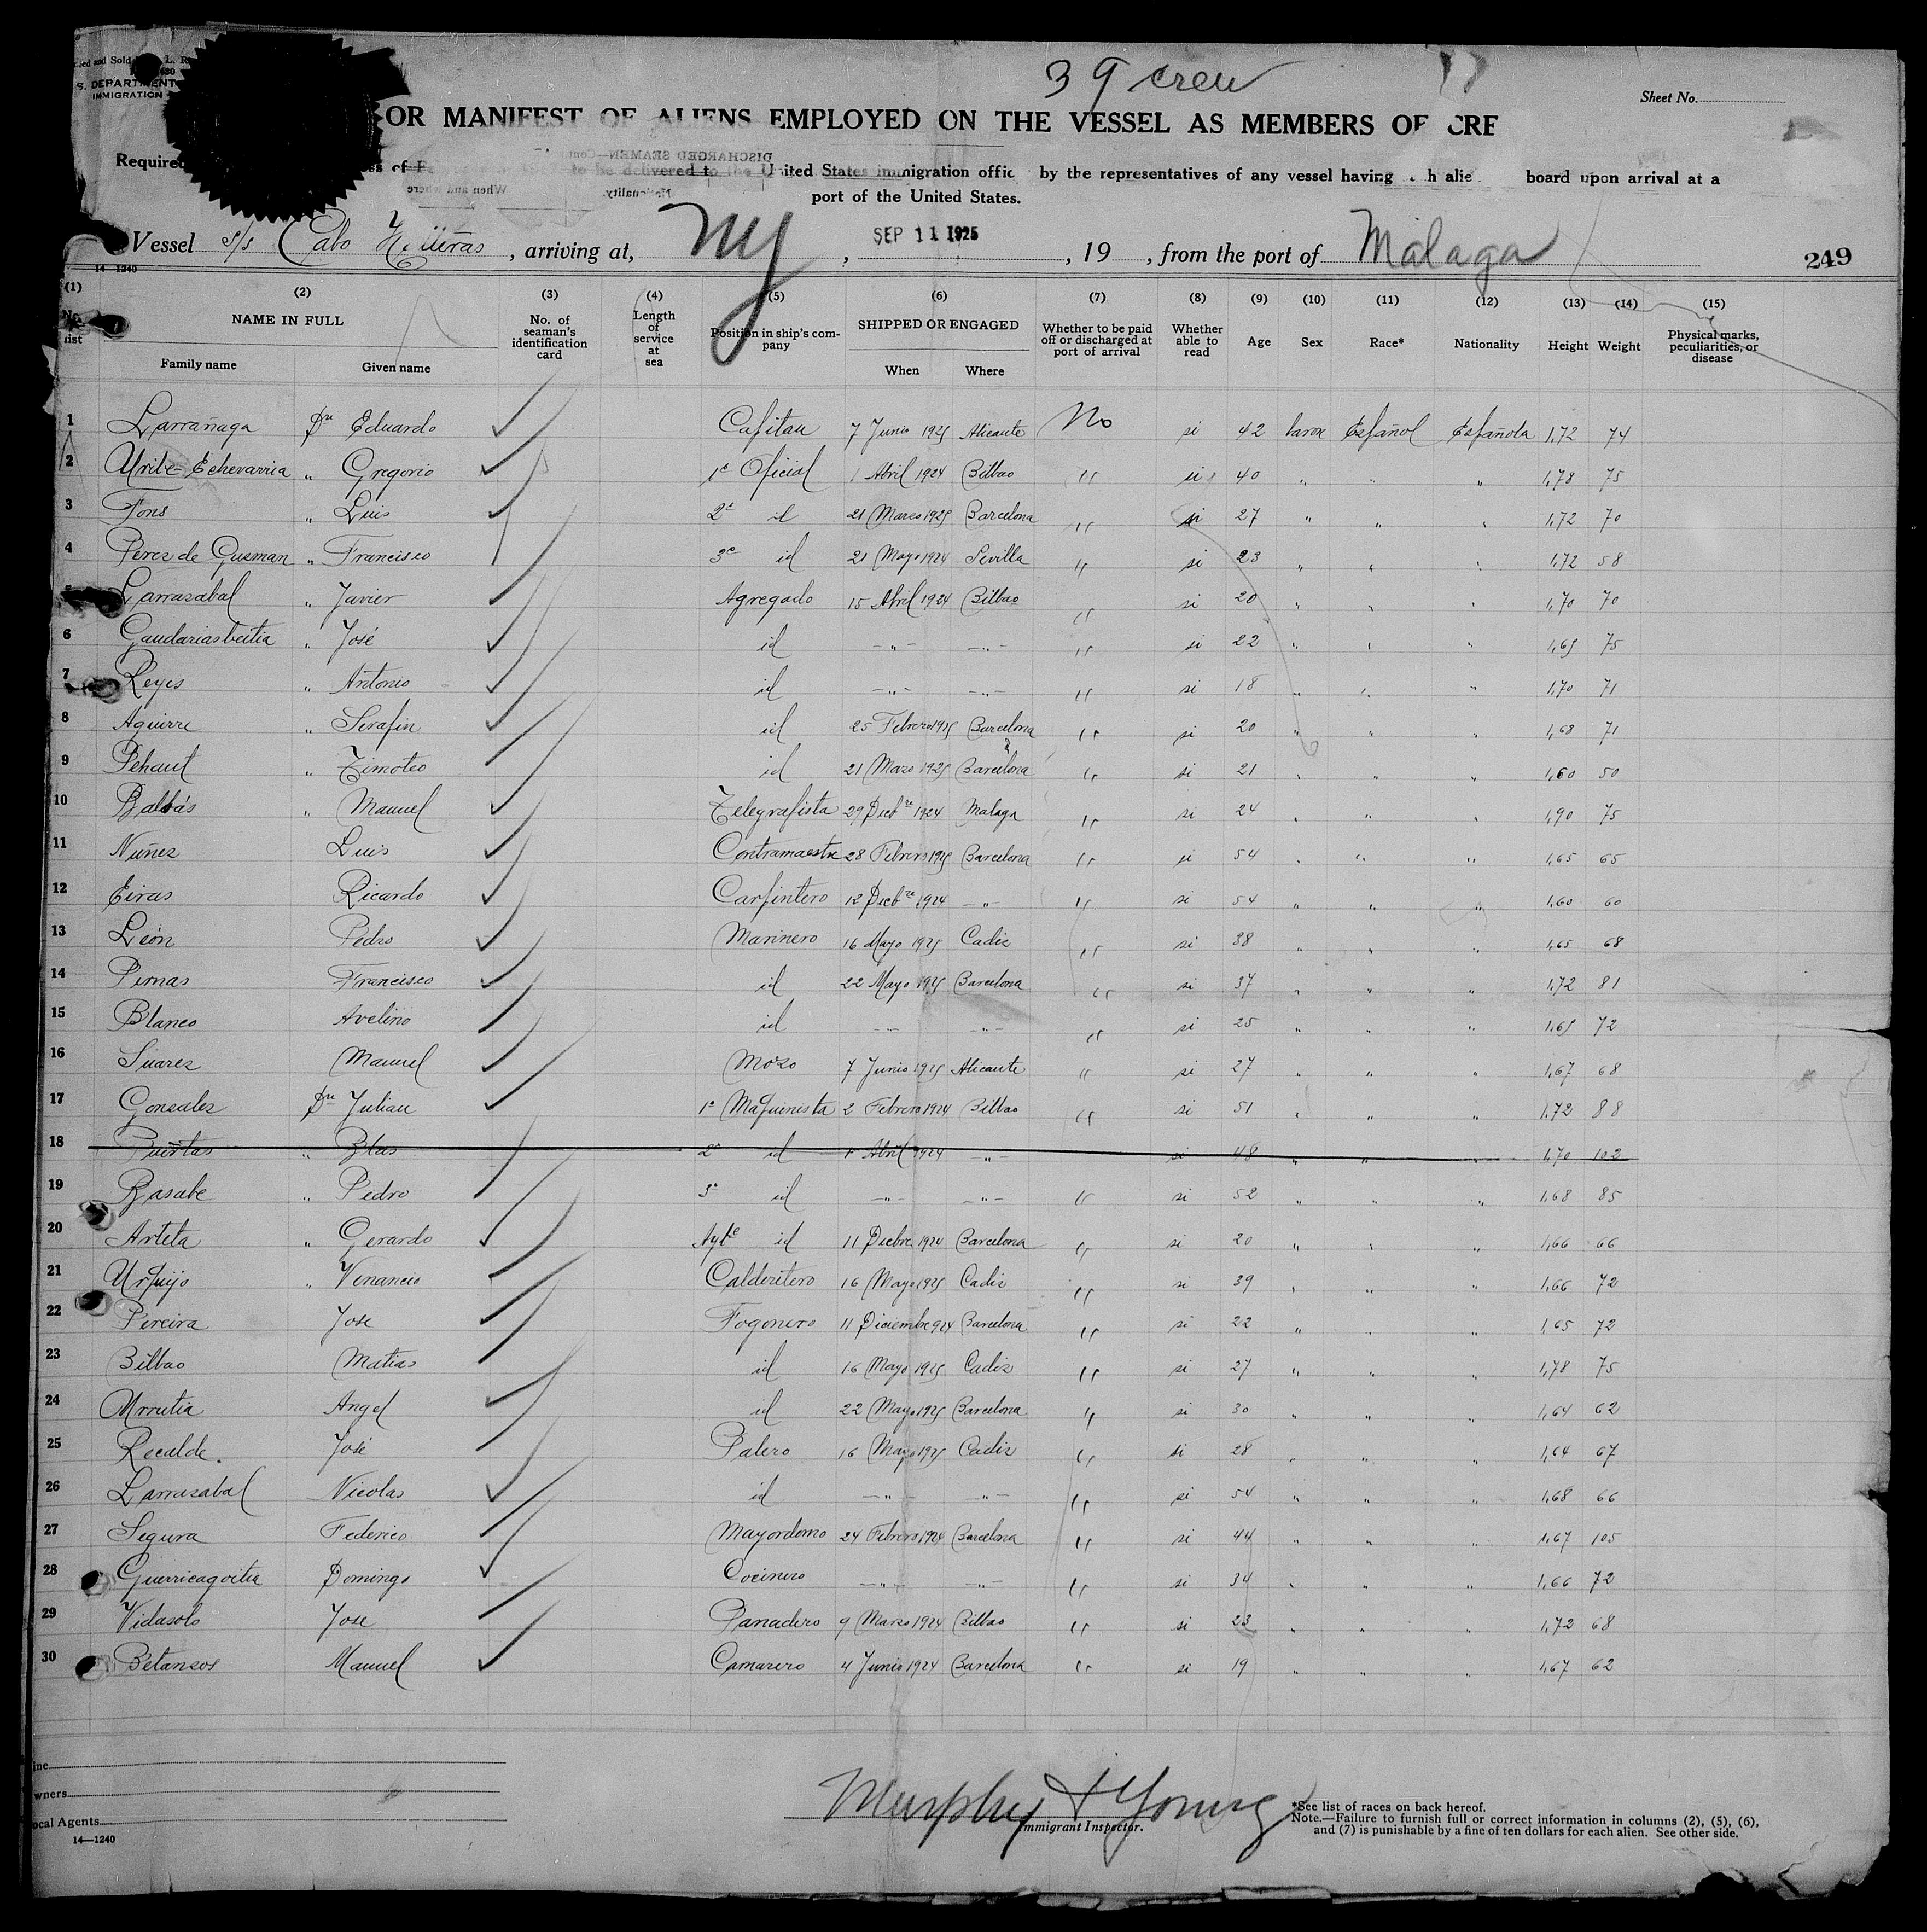 39 crew
Sheet No.
S. DEPARTMENT
IMMIGRATION
OR MANIFEST OF ALIENS EMPLOYED ON THE VESSEL AS MEMBERS OF CRE
DISCHARGED SEAMEN
Required to be delivered to the United States immigration offic by the representatives of any vessel having board upon arrival at a
When and where Nationality.
port of the United States.
Vessel s/s Cabo , arriving at, NY , SEP 11 1925 , 19 , from the port of Malaga 249
14-1240
(1) (2) (3) (4) (5) (6) (7) (8) (9) (10) (11) (12) (13) (14) (15)
No. list NAME IN FULL Family name Given name No. of seaman's identification card Length of service at sea Position in ship's company SHIPPED OR ENGAGED When Where Whether to be paid off or discharged at port of arrival Whether able to read Age Sex Race* Nationality Height Weight Physical marks, peculiarities, or disease
1 Larrañaga Dn Eduardo Capitan 7 Junio 1925 Alicante No si 42 baron Español Española 1,72 74
2 Uribe-Echevarria " Gregorio 1º Oficial 1 Abril 1924 Bilbao " si 40 " " " 1,78 75
3 Fons " Luis 2º id 21 Marzo 1925 Barcelona " si 27 " " " 1,72 70
4 Perez de Guzman " Francisco 3º id 21 Mayo 1924 Sevilla " si 23 " " " 1,72 58
Larrazabal " Javier Agregado 15 Abril 1924 Bilbao " si 20 " " " 1,70 70
6 Gandariasbeitia " José id " " " si 22 " " " 1,65 75
7 Reyes " Antonio id " " " si 18 " " " 1,70 71
8 Aguirre " Serafin id 25 Febrero 1925 Barcelona " si 20 " " " 1,68 71
9 Pehaut " Timoteo id 21 Marzo 1925 Barcelona " si 21 " " " 1,60 50
10 Balbás " Manuel Telegrafista 29 Dicbre 1924 Malaga " si 24 " " " 1,90 75
11 Nuñez Luis Contramaestre 28 Febrero 1925 Barcelona " si 54 " " " 1,65 65
12 Eiras Ricardo Carpintero 12 Dicbre 1924 " " si 54 " " " 1,60 60
13 León Pedro Marinero 16 Mayo 1925 Cadiz " si 38 " " " 1,65 68
14 Pernas Francisco id 22 Mayo 1925 Barcelona " si 37 " " " 1,72 81
15 Blanco Avelino id " " " si 25 " " " 1,65 72
16 Suarez Manuel Mozo 7 Junio 1925 Alicante " si 27 " " " 1,67 68
17 Gonzalez Dn Julian 1º Maquinista 2 Febrero 1924 Bilbao " si 51 " " " 1,72 88
18 Puertas " Blas 2º id 1º Abril 1924 " si 48 " " " 1,70 102
19 Basabe " Pedro 3º id " " " si 52 " " " 1,68 85
20 Arteta " Gerardo Ayte id 11 Dicbre 1924 Barcelona " si 20 " " " 1,66 66
21 Urquijo " Venancio Calderetero 16 Mayo 1925 Cadiz " si 39 " " " 1,66 72
22 Pereira Jose Fogonero 11 Diciembre 924 Barcelona " si 22 " " " 1,65 72
23 Bilbao Matias id 16 Mayo 1925 Cadiz " si 27 " " " 1,78 75
24 Urrutia Angel id 22 Mayo 1925 Barcelona " si 30 " " " 1,64 62
25 Recalde. José Palero 16 Mayo 1925 Cadiz " si 28 " " " 1,64 67
26 Larrazabal Nicolas id " " " si 54 " " " 1,68 66
27 Segura Federico Mayordomo 24 Febrero 1924 Barcelona " si 44 " " " 1,67 105
28 Guerricagoitia Domingo Cocinero " " " si 34 " " " 1,66 72
29 Vidasolo Jose Panadero 9 Marzo 1924 Bilbao " si 23 " " " 1,72 68
30 Betanzos Manuel Camarero 4 Junio 1924 Barcelona " si 19 " " " 1,67 62
Murphy & Young
Immigrant Inspector.
*See list of races on back hereof.
Note.—Failure to furnish full or correct information in columns (2), (5), (6),
and (7) is punishable by a fine of ten dollars for each alien. See other side.
Local Agents
14—1240